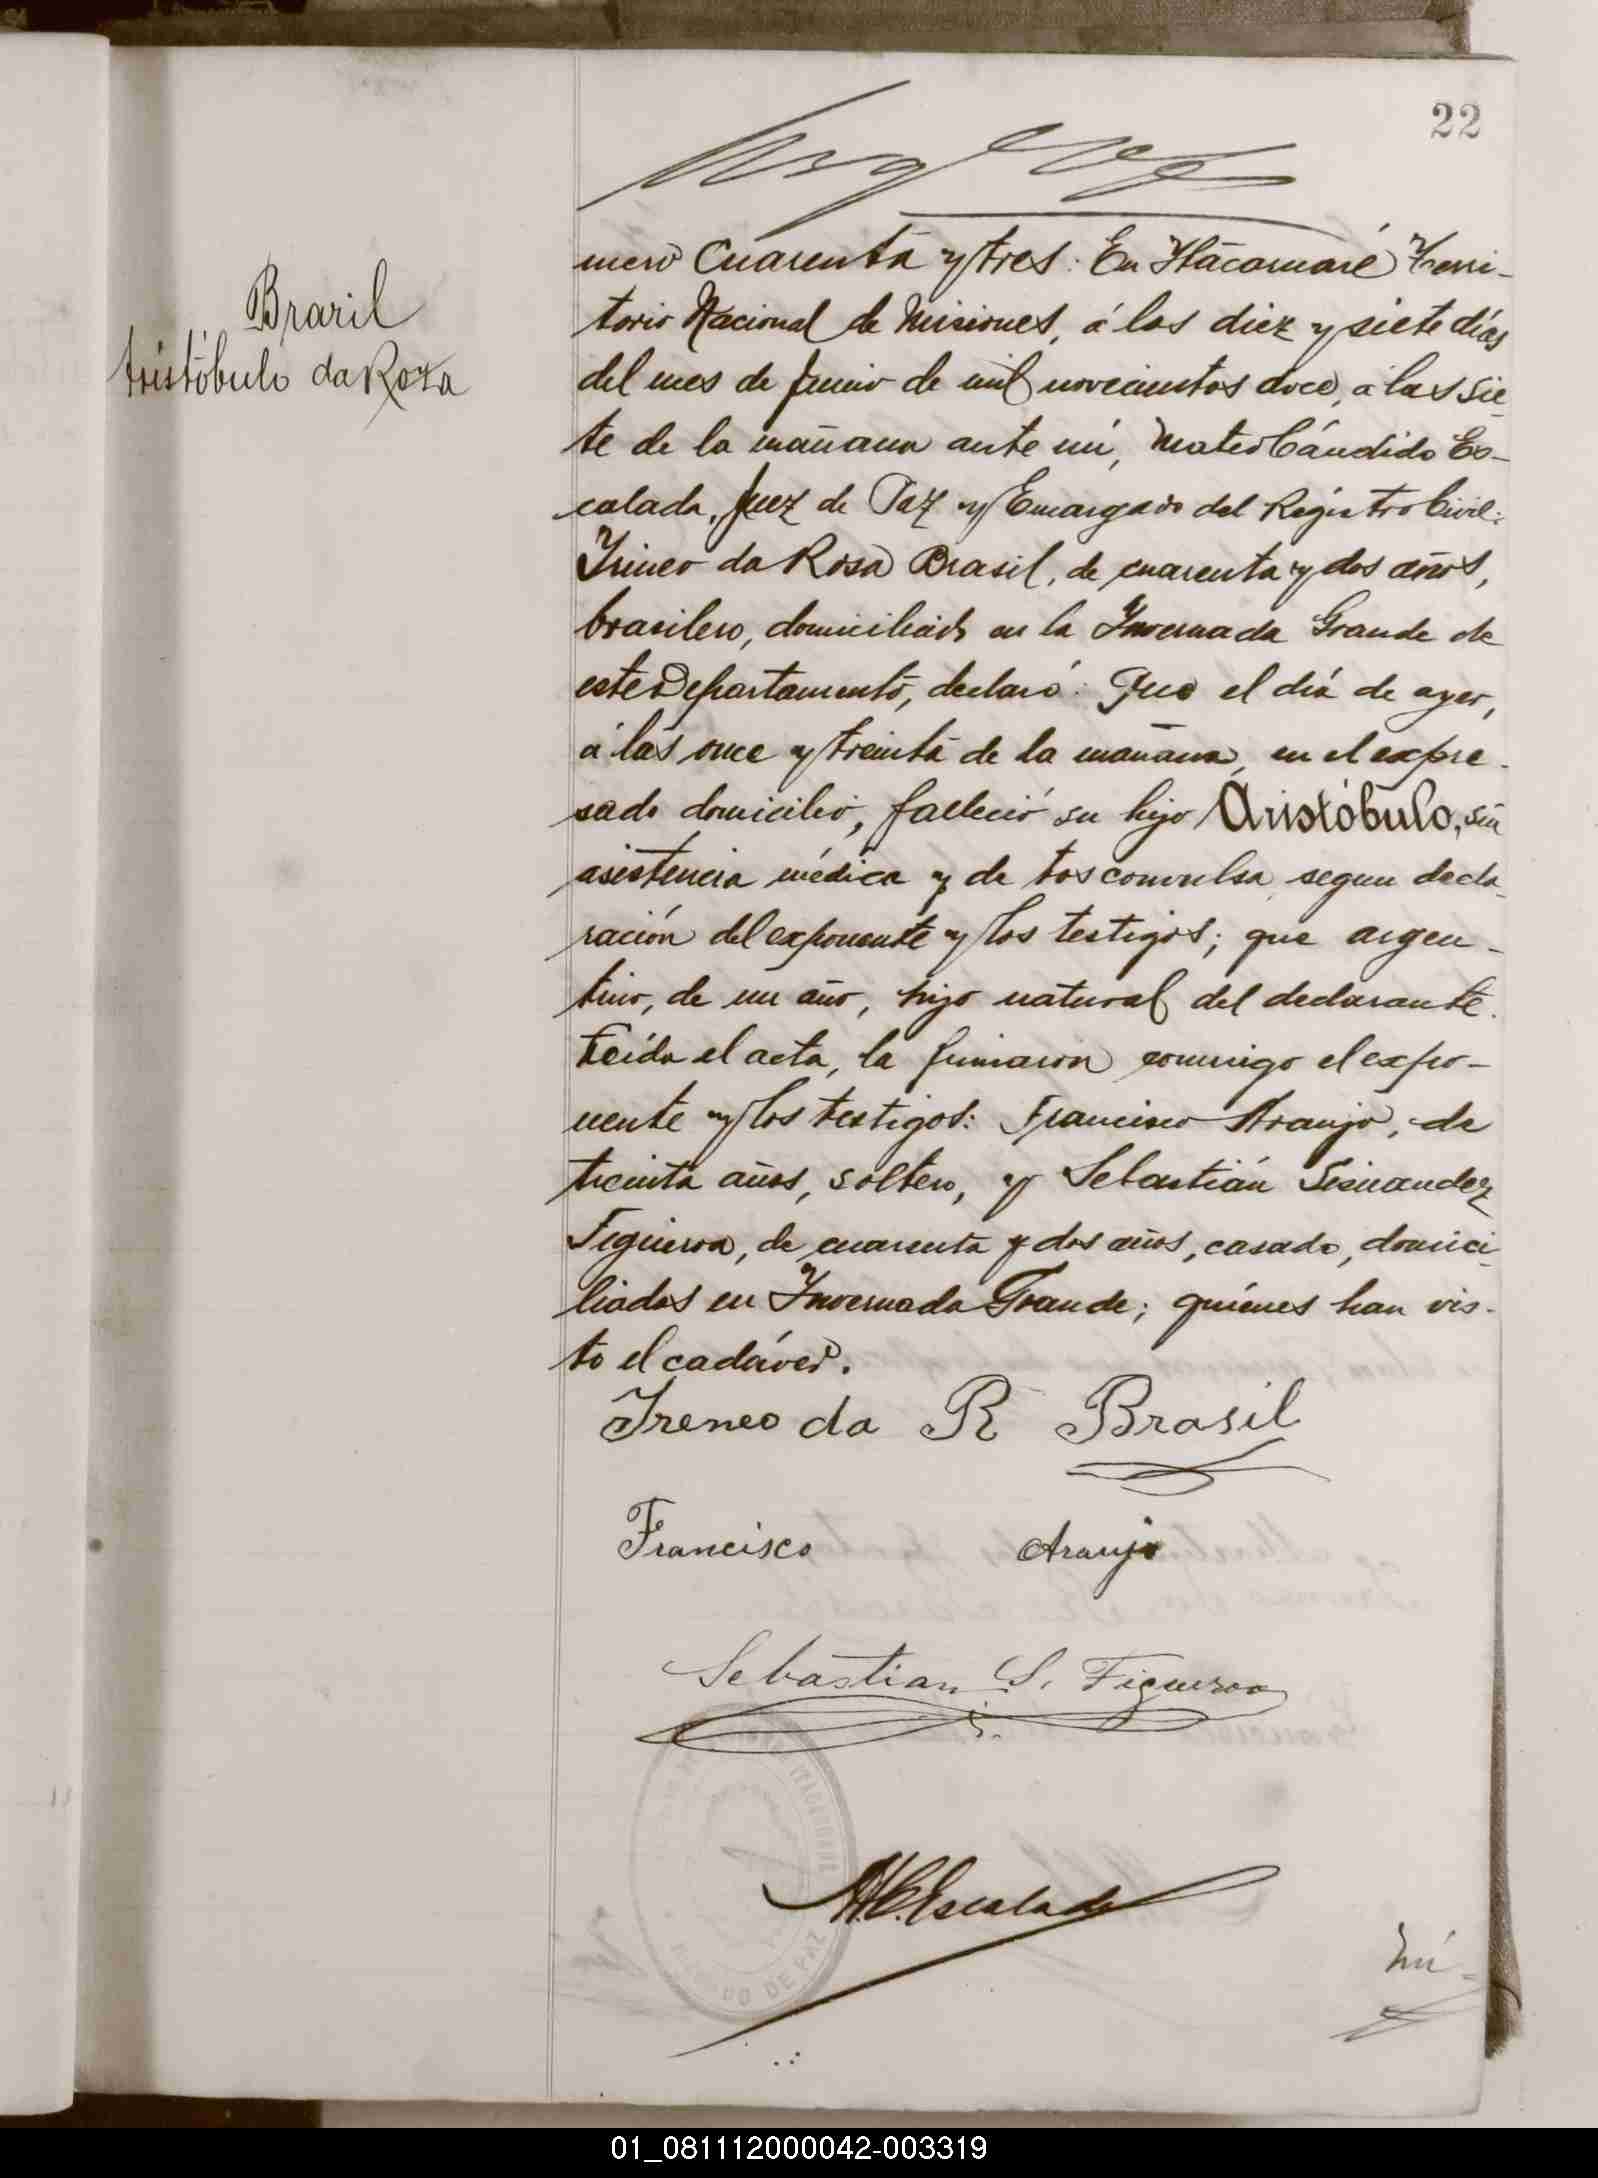 22
Brazil
Aristóbulo da Roza
mero Cuarenta y tres: En Itacaruaré Terri-
torio Nacional de Misiones, á los diez y siete días
del mes de Junio de mil novecientos doce, á las sie-
te de la mañana ante mí, Mateo Cándido Es-
calada, Juez de Paz y Encargado del Registro Civil:
Irineo da Rosa Brasil, de cuarenta y dos años,
brasilero, domiciliado en la Invernada Grande de
este Departamento, declaró: Que el día de ayer,
á las once y treinta de la mañana, en el expre-
sado domicilio, falleció su hijo Aristóbulo, sin
asistencia médica y de tos convulsa, segun decla-
ración del exponente y los testigos; que argen-
tino, de un año, hijo natural del declarante.
Leida el acta, la firmaron conmigo el expo-
nente y los testigos: Francisco Araujo, de
treinta años, soltero, y Sebastián Sisnandez
Figueroa, de cuarenta y dos años, casado, domici-
liados en Invernada Grande; quiénes han vis-
to el cadáver.
Ireneo da R Brasil
Francisco Araujo
Sebastian S. Figueroa
ITACARUARE
JUZGADO DE PAZ
M.C. Escalada
Nú-
01_081112000042-003319